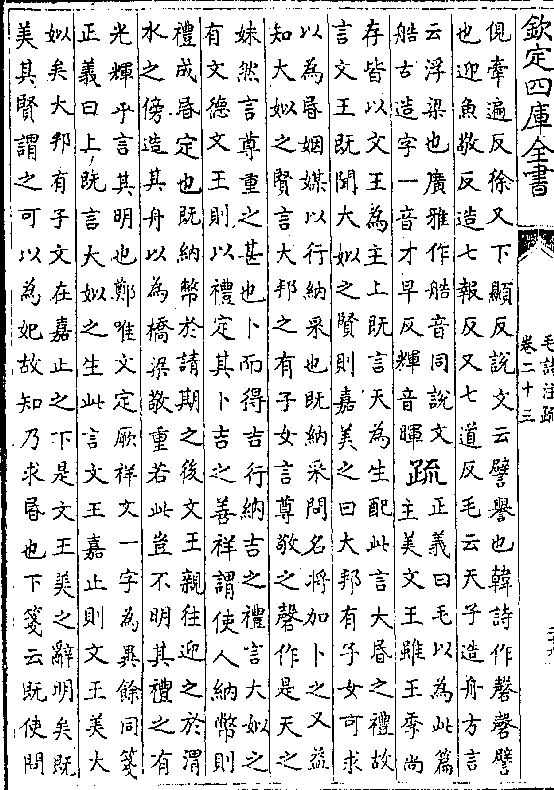 欽定四庫全書
毛詩注疏
卷二十三
俔牽遍反徐又下顯反說文云譬譽也韓詩作磬磬譬
也迎魚敬反造七報反又七道反毛云天子造舟方言
云浮梁也廣雅作艁音同說文
艁古造字一音才早反輝音暉疏正義曰毛以為此篇
主美文王雖王季尚
存皆以文王為主上既言天為生配此言大昏之禮故
言文王既聞大姒之賢則嘉美之曰大邦有子女可求
以為昏姻媒以行納采也既納采問名將加卜之又益
知大姒之賢言大邦之有子女言尊敬之磬作是天之
妹然言尊重之甚也卜而得吉行納吉之禮言大姒之
有文德文王則以禮定其卜吉之善祥謂使人納幣則
禮成昏定也既納幣於請期之後文王親往迎之於渭
水之傍造其舟以為橋梁敬重若此豈不明其禮之有
光輝乎言其明也鄭唯文定厥祥文一字為異餘同箋
正義曰上既言大姒之生此言文王嘉止則文王美大
姒矣大邦有子文在嘉止之下是文王美之辭明矣既
美其賢謂之可以為妃故知乃求昏也下箋云既使問